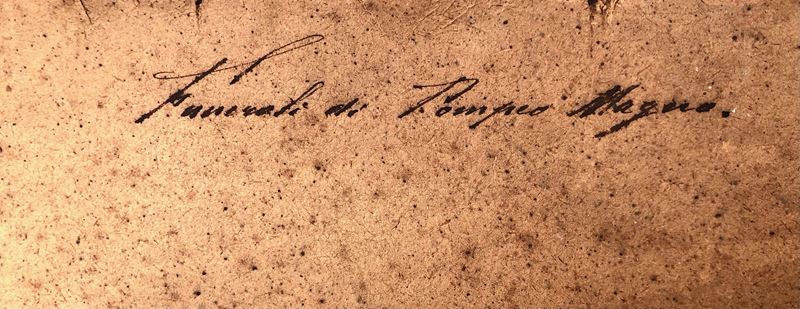 Funerali di Pompeo Magno.